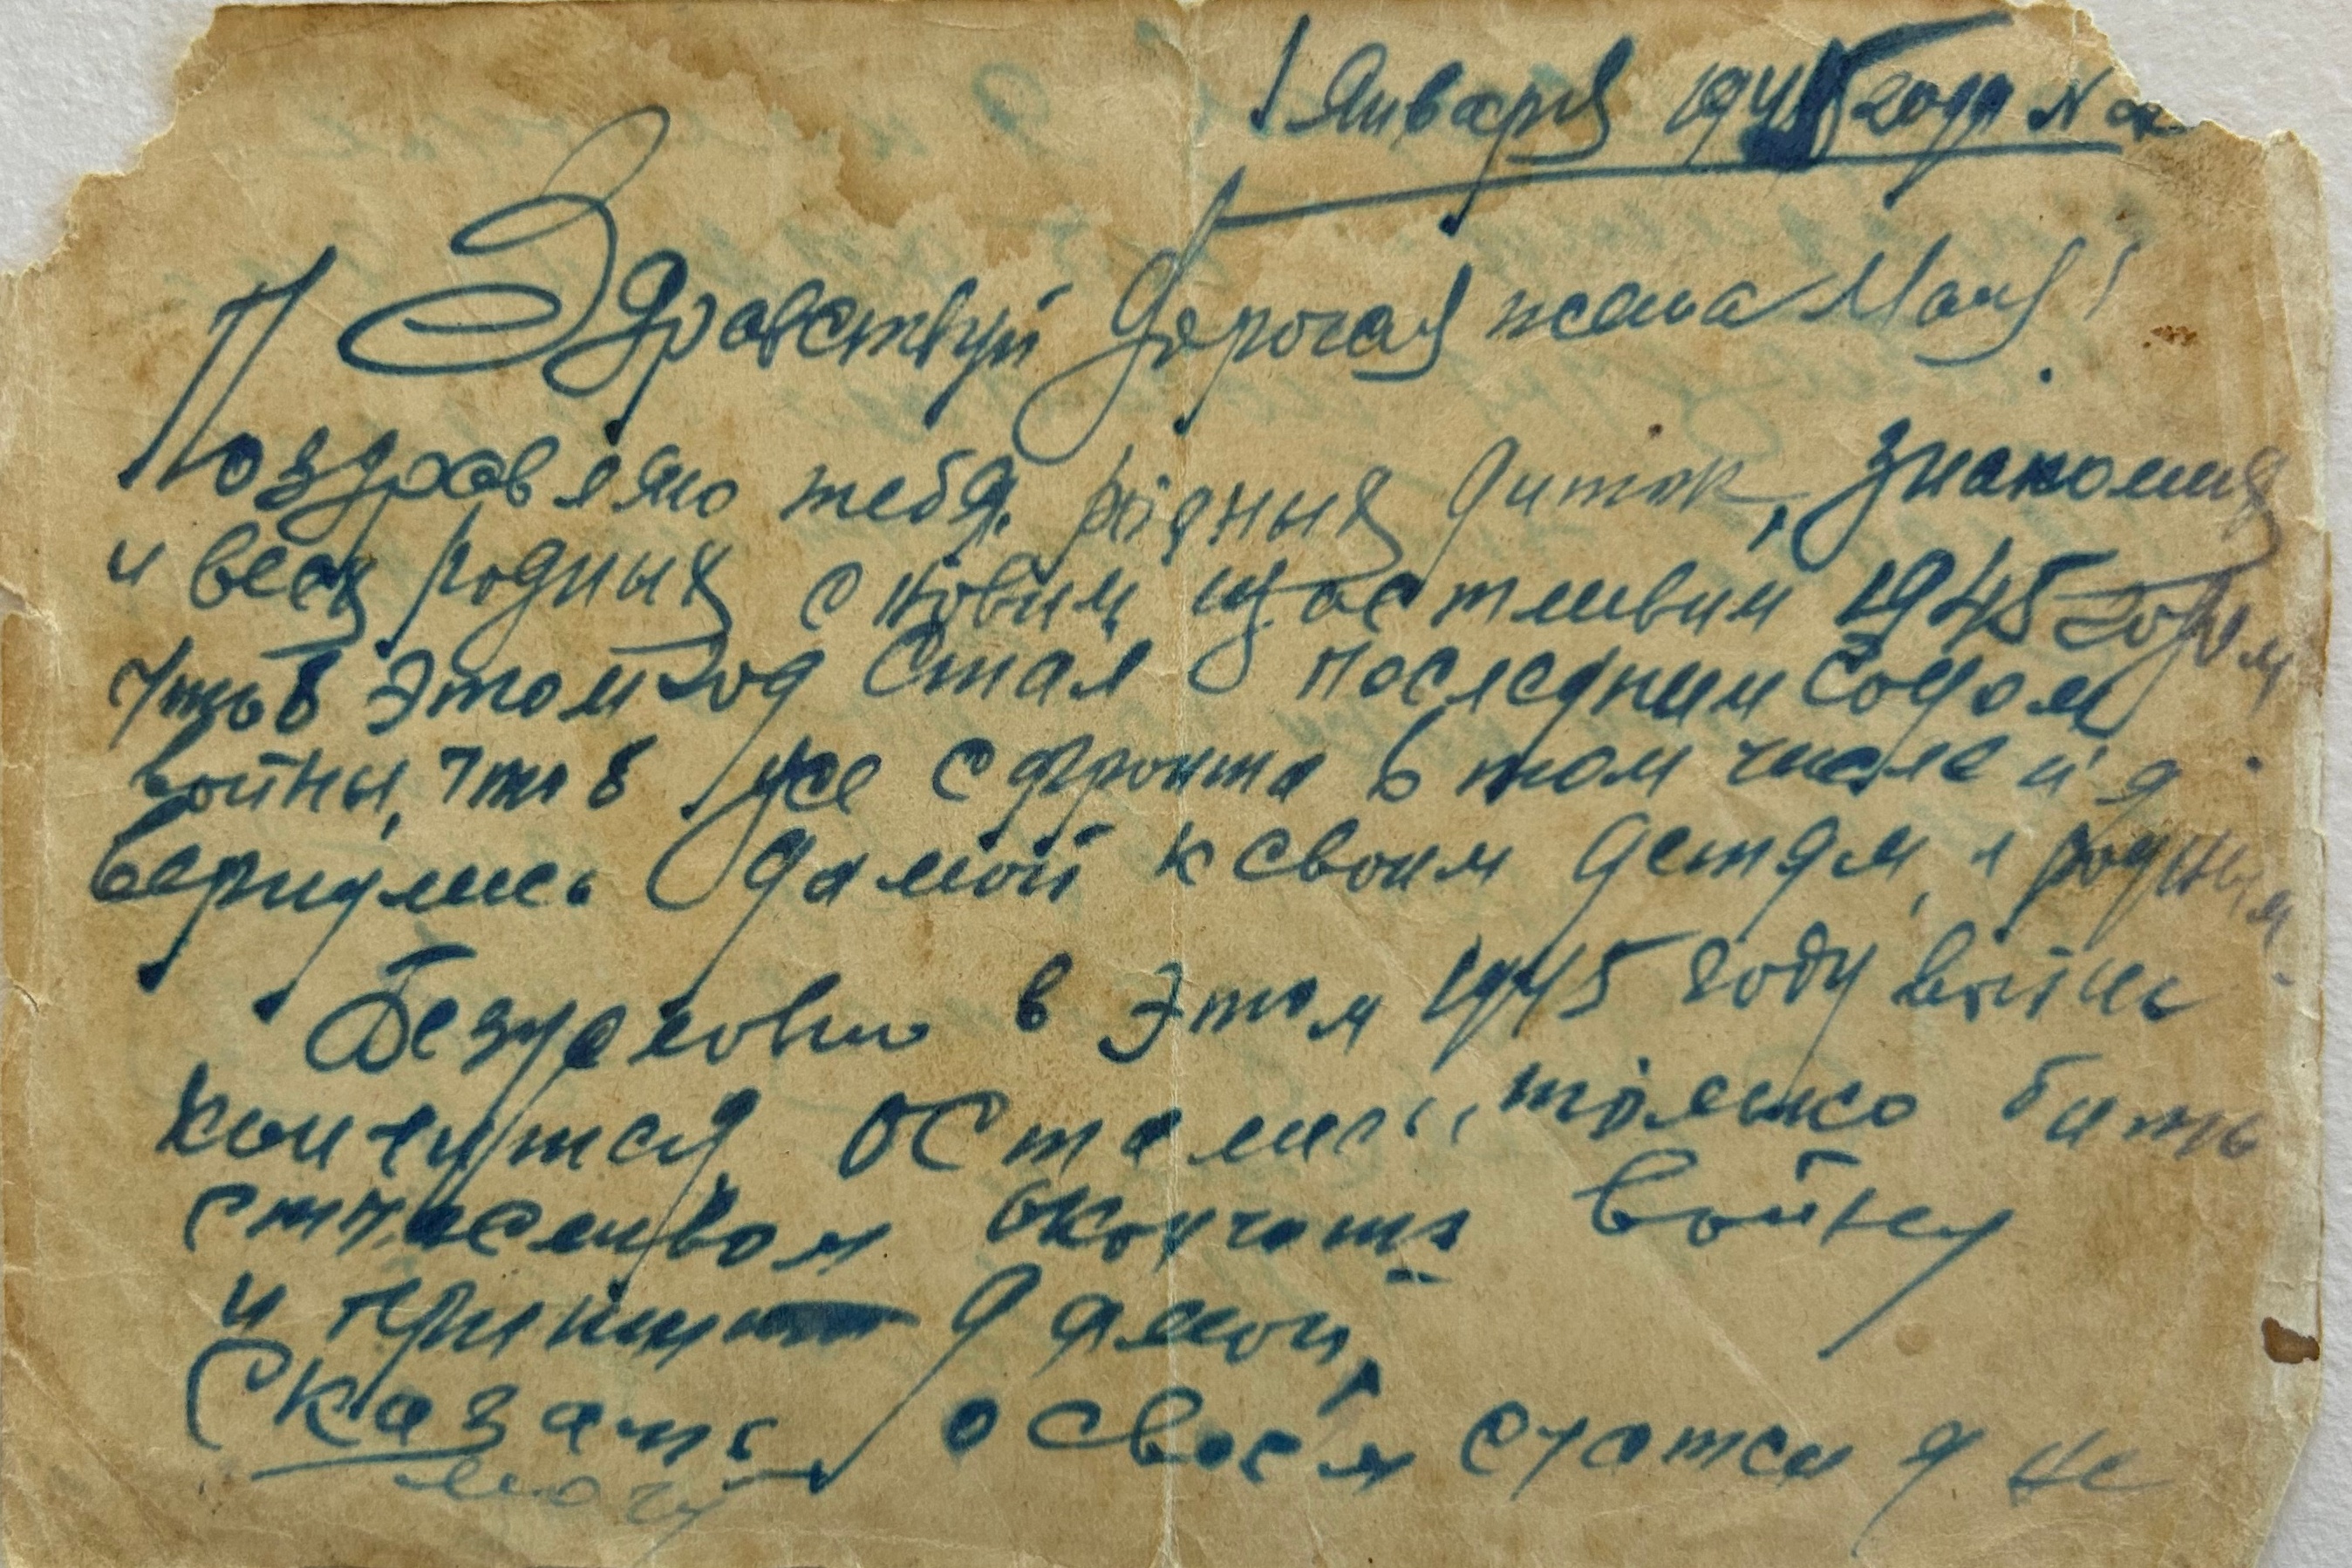 1 Января 1945 года №
Здравствуй дорогая жена Маня!
Поздравляю тебя, родных диток, знакомых
и всех родных с новим щастливим 1945 годом
чтоб этом год стал последним годом
войны, чтоб уже с фронта в том числе и я
вернулись дамой к своим детям и родным.
Безусловно в этом 1945 году война
кончится осталось только бить
счасливом окончить войну
и прийти дамой,
Сказать о своем счатси я не
могу